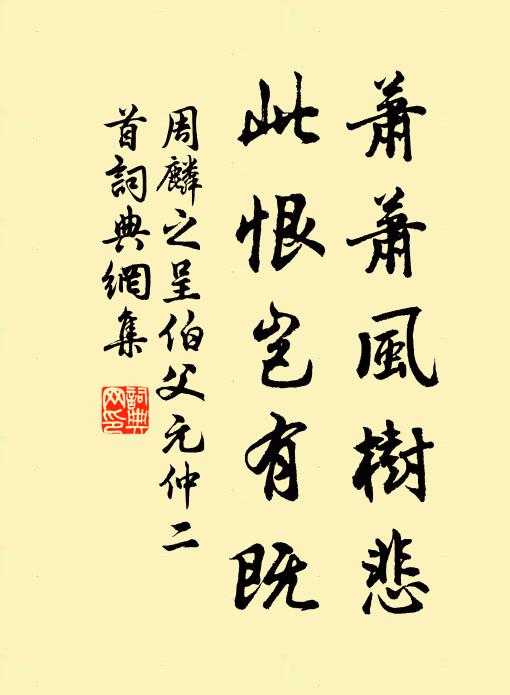 蕭蕭風樹悲
此恨豈有既
周麟之呈伯父元仲二
首詞典網集
詞典網印